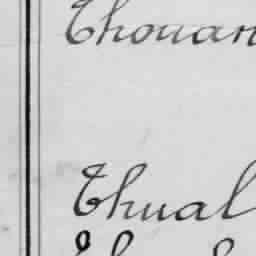 Thouan
Thual